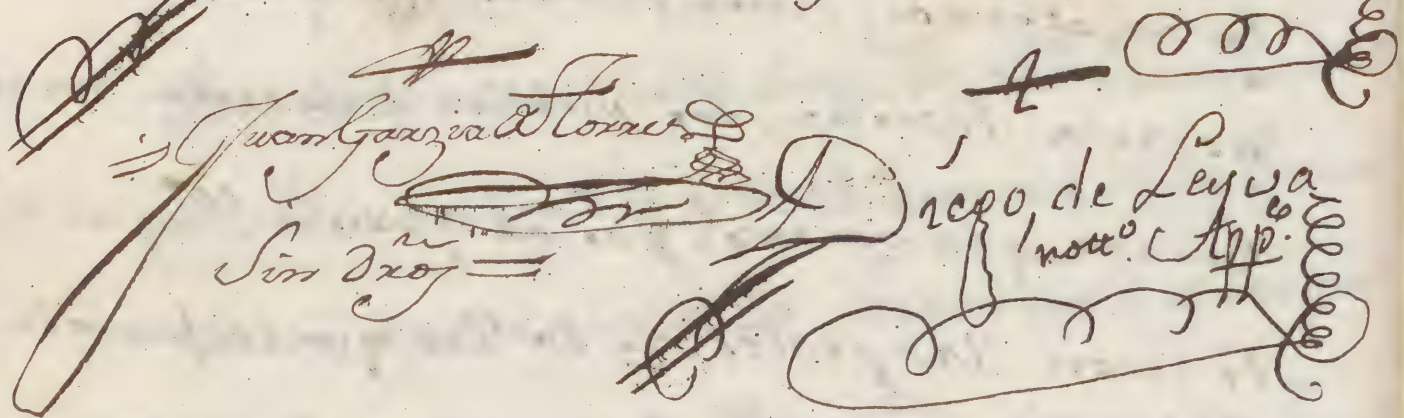 Juan Garzia de Torres
Sin dros
Diego, de Leyva
nott.º App.co